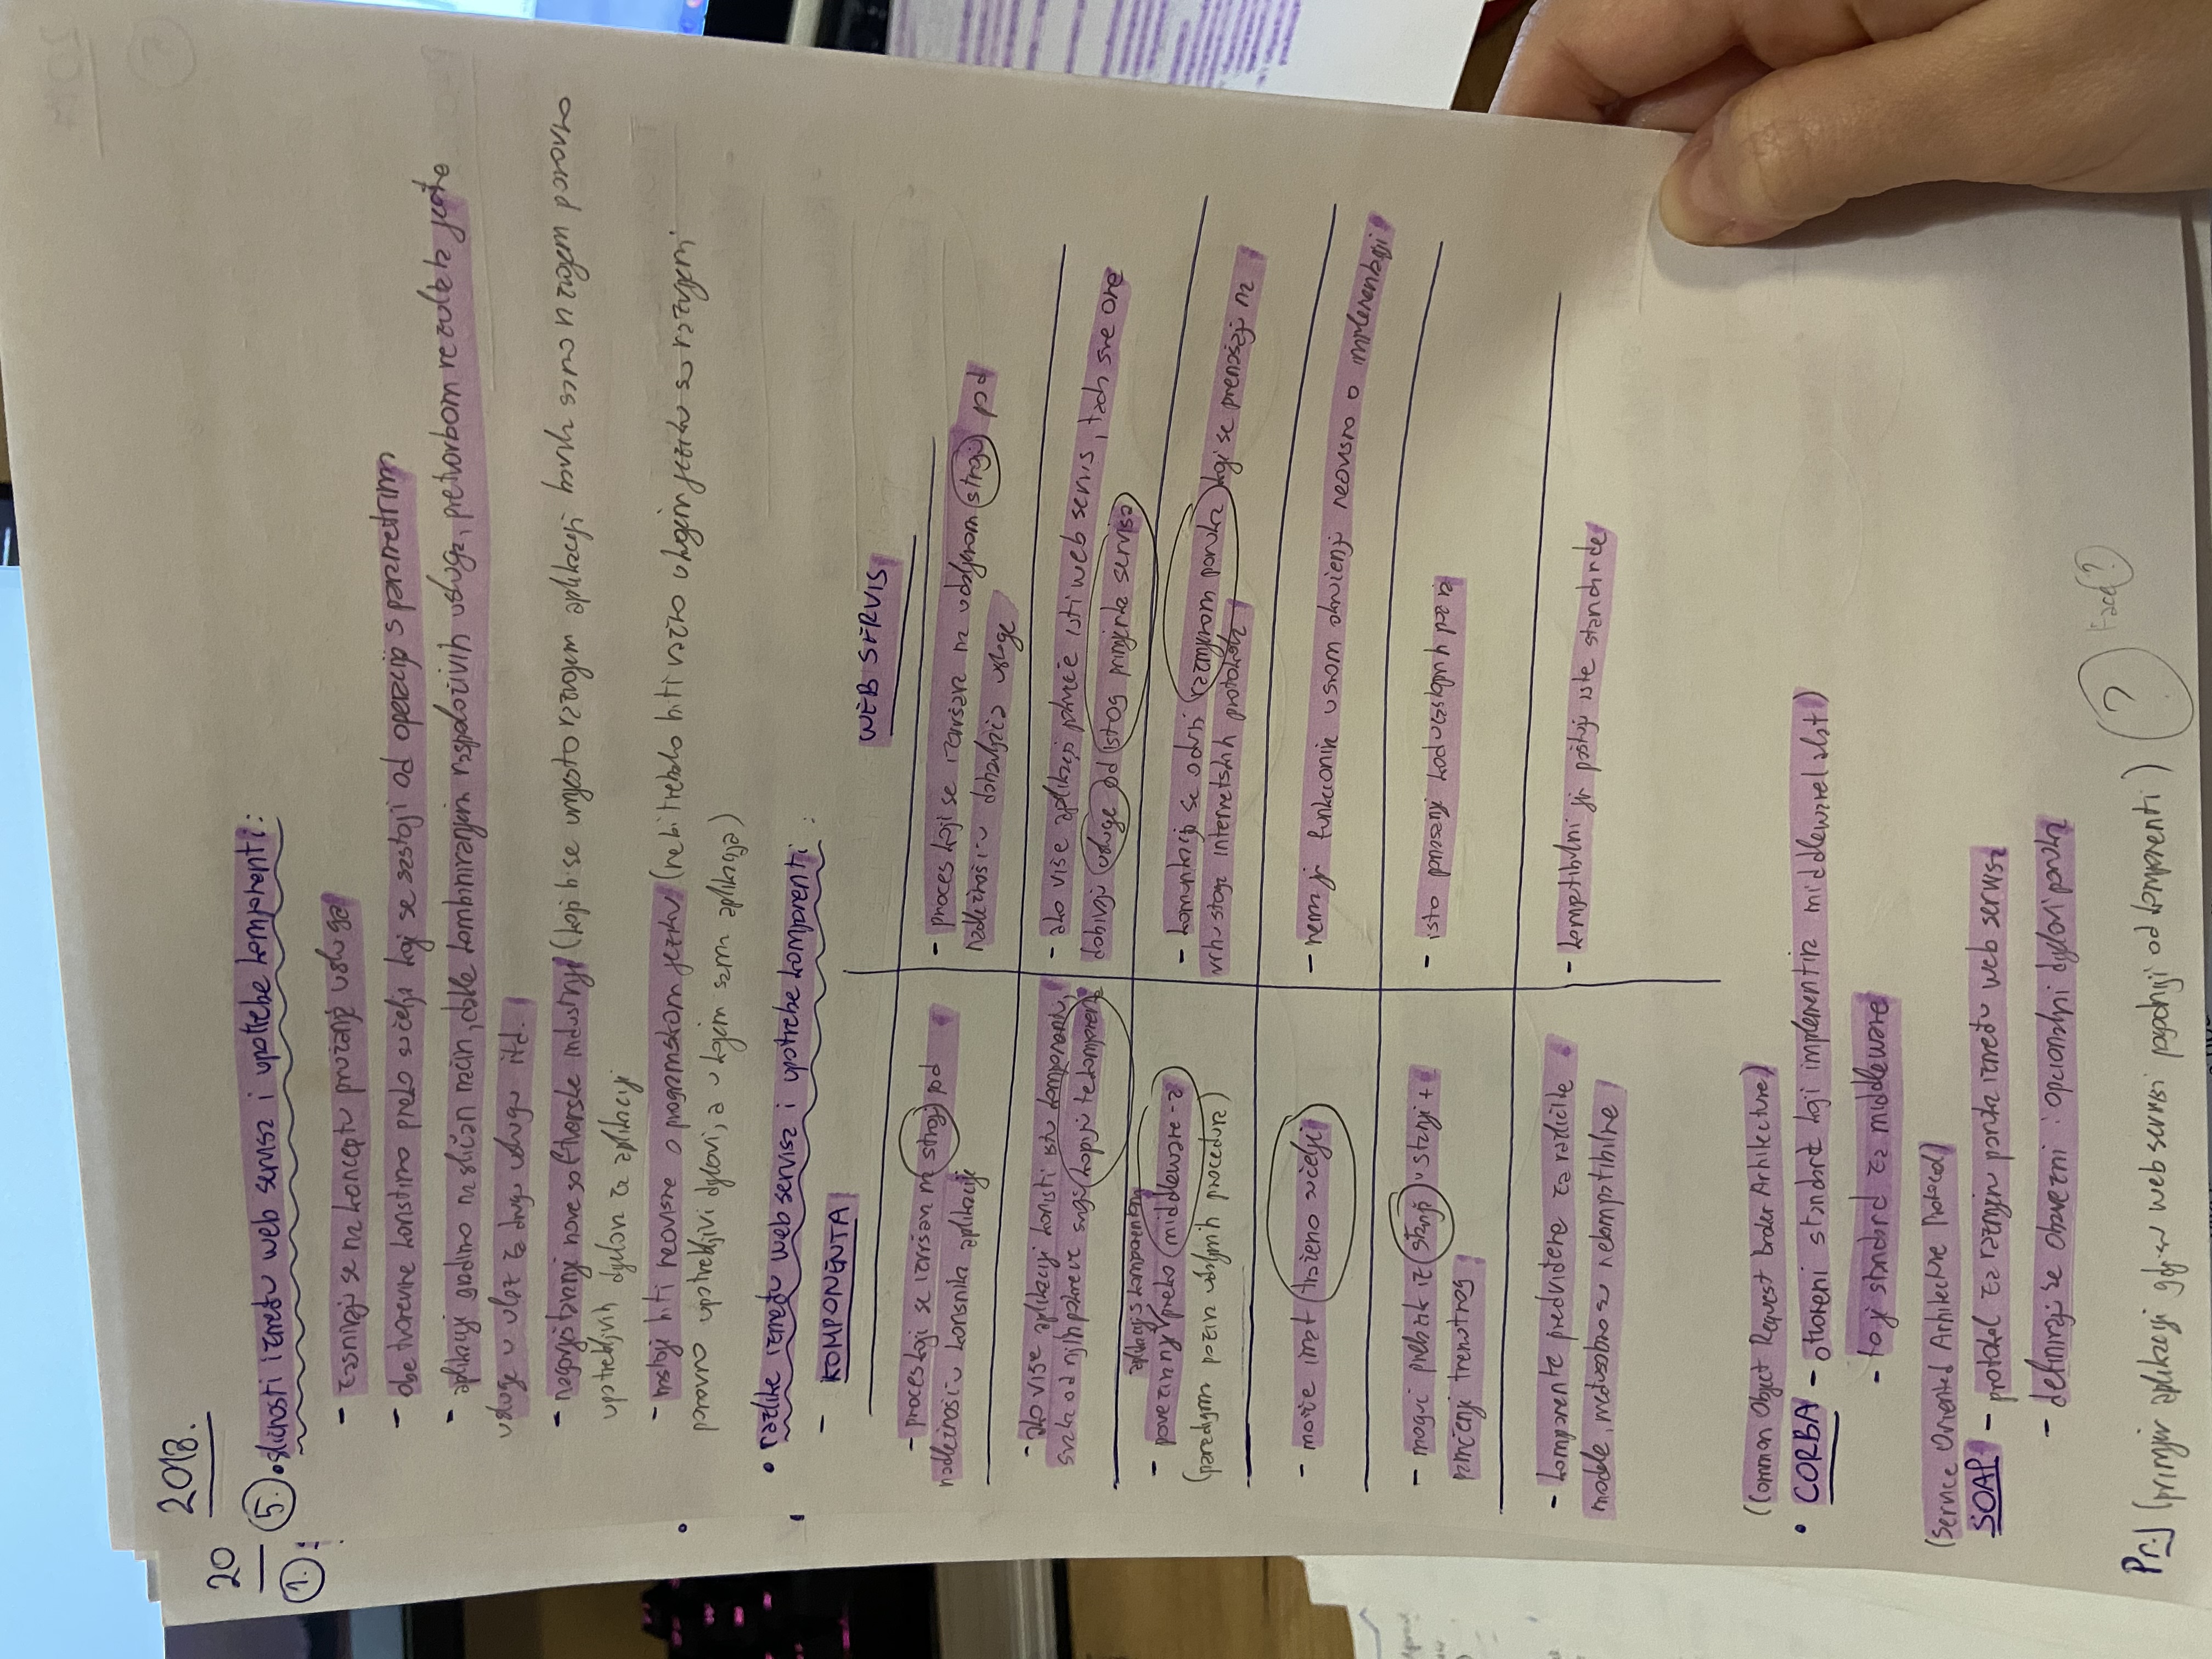 2018.
20
5. • sličnosti između web servisa i upotrebe komponenti:
1.
- zasnivaju se na konceptu pružanja usluga
- obe tvorevine koristimo preko sučelja koji se sastoji od operacija s parametrima
- aplikacije gradimo na sličan način, dakle kombiniranjem raspoloživih usluga, pretvorbom rezultata jedne
usluge u ulaz za drugu uslugu itd.
- nagovještavanje nove softverske industrije (koja bi se umjesto razvojem aplikacija bavila samo razvojem ponovno
upotrebljivih dijelova za aplikacije
- nastoje biti neovisne o programskom jeziku (ne bi trebalo biti važno u kojem jeziku su razvijeni
ponovno upotrebljivi dijelovi, a u kojem sama aplikacija)
• razlike između web servisa i upotrebe komponenti :
- KOMPONENTA
WEB SERVIS
- proces koji se izvršava na stroju pod
nadležnošću korisnika aplikacije
- proces koji se izvršava na udaljenom stroju pod
nadležnošću dobavljača usluge
- ako više aplikacija koristi istu komponentu,
svaka od njih pokreće svoju kopiju te komponente
- ako više aplikacija pokreće isti web servis, tada sve one
dobivaju usluge od istog primjerka servisa
aplikacije s komponentom
- povezivanje preko middleware-a
(paradigma poziva udaljenih procedura)
- komunikacija se odvija razmjenom poruka koji se prenošaju na
vrhu stoga internetskih protokola
- može imat traženo sučelje
- nema ga funkcionira u svom okruženju neovisno o implementaciji
- moguć prelazak iz stanja u stanje +
pamćenje trenutnog
- isto ponašanje kod uzastopnih poziva
- komponente predviđene za različite
modele, međusobno su nekompatibilne
- kompatibilni jer poštuju iste standarde
(Common Object Request Broker Arhitecture)
• CORBA - otvoreni standard koji implementira middleware( alat )
- to je standard za middleware
(Service Oriented Arhitecture Protocol)
SOAP - protokol za razmjenu poruka između web servisa
- definiraju se obavezni i opcionalni dijelovi poruka
Pr.] (primjer aplikacije gdje su web servisi pogodniji od komponenti) ? Face ?